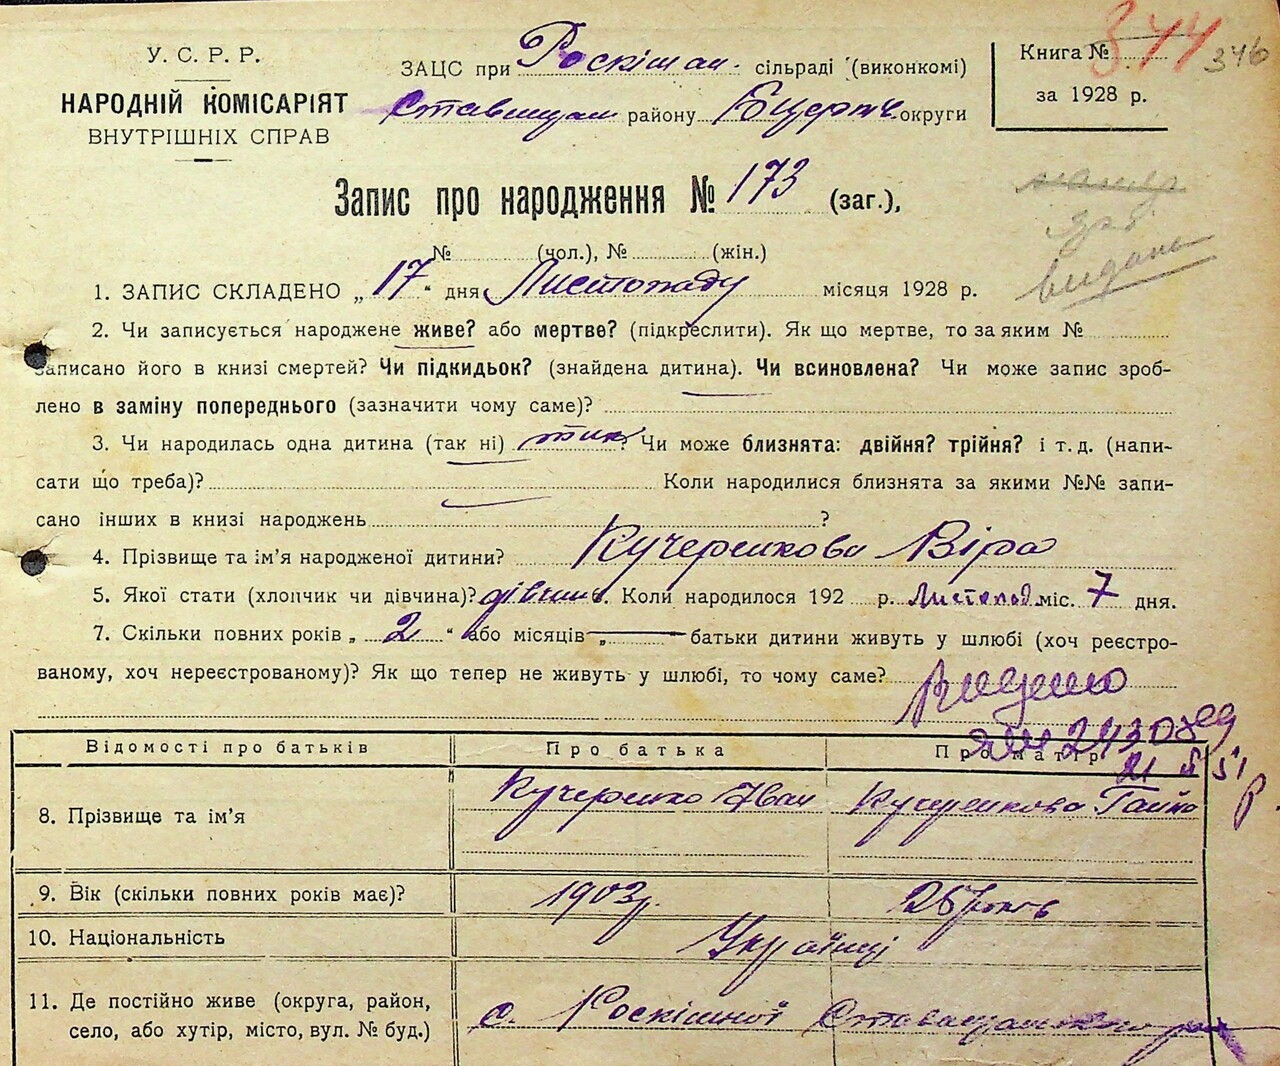 У. С. Р. Р.
НАРОДНІЙ КОМІСАРІЯТ
ВНУТРІШНІХ СПРАВ
ЗАЦС при Роскішан. сільраді (виконкомі)
Ставищан району Бцерк. округи
Книга № 344 346
за 1928 р.
Запис про народження № 173 (заг.),
№ (чол.), № (жін.)
видано
1. ЗАПИС СКЛАДЕНО „17“ дня Листопаду місяця 1928 р.
2. Чи записується народжене живе? або мертве? (підкреслити). Як що мертве, то за яким №
записано його в книзі смертей? Чи підкидьок? (знайдена дитина). Чи всиновлена? Чи може запис зроб-
лено в заміну попереднього (зазначити чому саме)?
3. Чи народилась одна дитина (так ні) так? Чи може близнята: двійня? трійня? і т. д. (напи-
сати що треба)? Коли народилися близнята за якими №№ запи-
сано інших в книзі народжень ?
4. Прізвище та ім’я народженої дитини? Кучеренкова Віра
5. Якої стати (хлопчик чи дівчина)? дівчин 6. Коли народилося 192 р. Листопад міс. 7 дня.
7. Скільки повних років „ 2 “ або місяців „ — батьки дитини живуть у шлюбі (хоч реєстро-
ваному, хоч нереєстрованому)? Як що тепер не живуть у шлюбі, то чому саме?
Видано
243078
21 5 51
Відомості про батьків Про батька Про матір
8. Прізвище та ім’я Кучеренко Іван Кучеренкова Ганна
9. Вік (скільки повних років має)? 1903 р. 25 років
10. Національність Українці
11. Де постійно живе (округа, район,
село, або хутір, місто, вул. № буд.) с. Роскішної Ставищанського